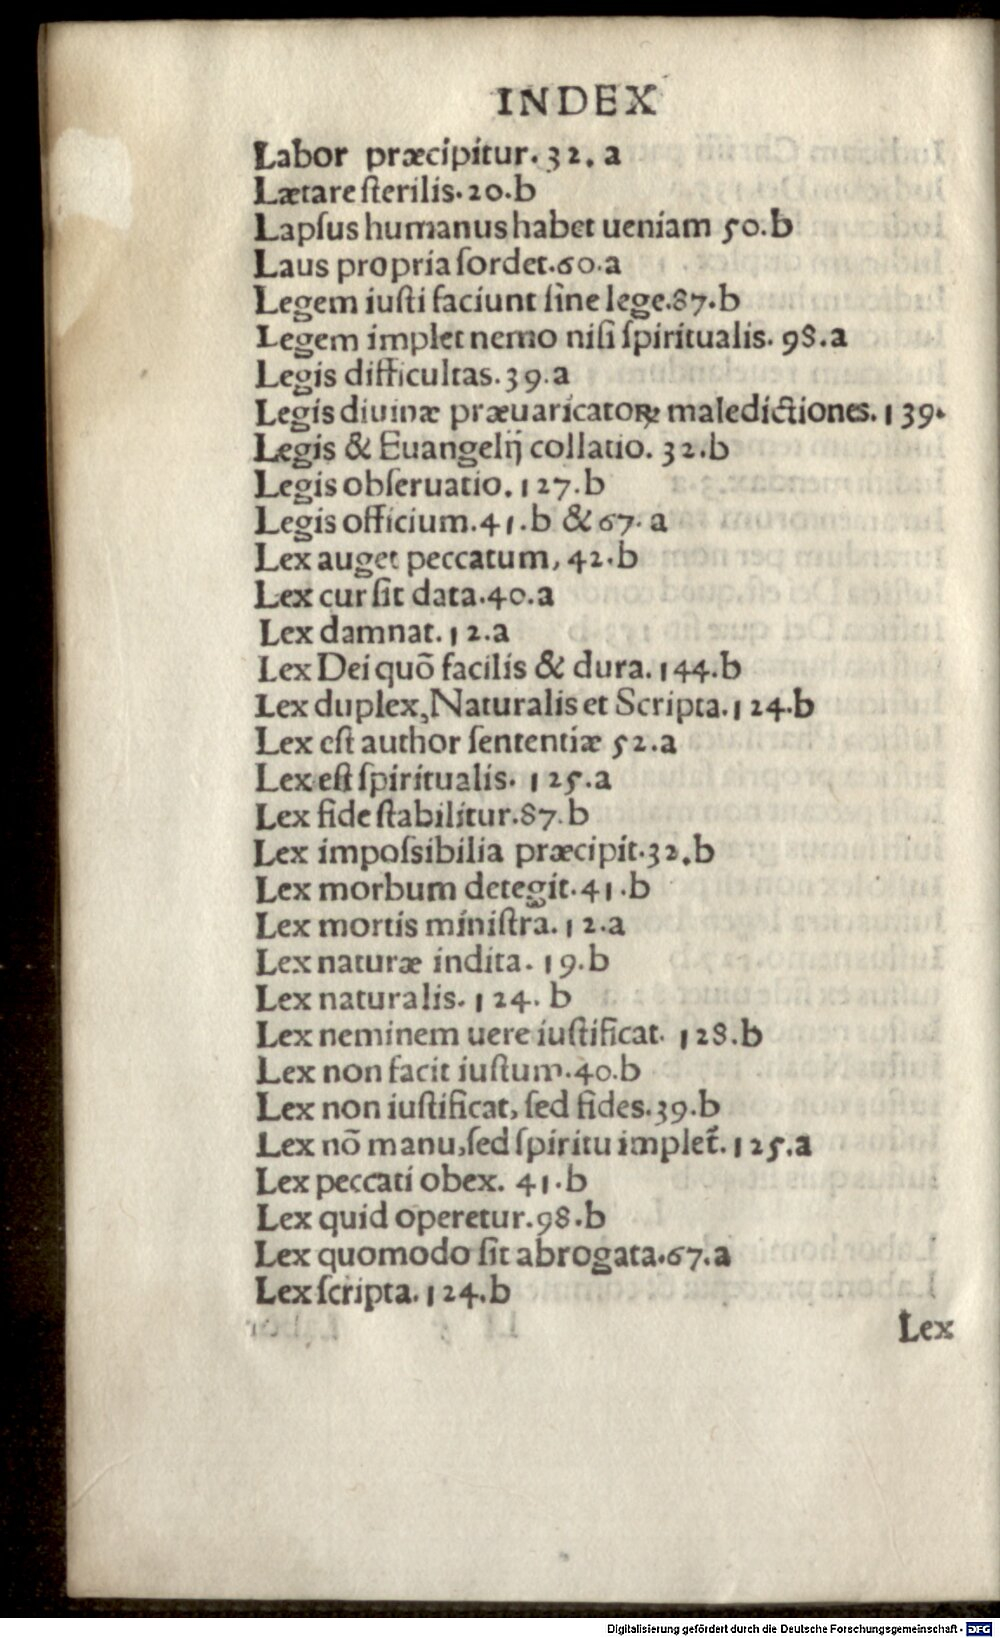 INDEX
Labor præcipitur. 32. a
Lætare ſterilis. 20. b
Lapſus humanus habet ueniam 50. b
Laus propria ſordet. 60. a
Legem iuſti faciunt ſine lege. 87. b
Legem implet nemo niſi ſpiritualis. 98. a
Legis difficultas. 39. a
Legis diuinæ præuaricatoꝝ maledictiones. 139.
Legis & Euangelij collatio. 32. b
Legis obſeruatio. 127. b
Legis officium. 41. b & 67. a
Lex auget peccatum, 42. b
Lex cur ſit data. 40. a
Lex damnat. 12. a
Lex Dei quõ facilis & dura. 144. b
Lex duplex, Naturalis et Scripta. 124. b
Lex eſt author ſententiæ 52. a
Lex eſt ſpiritualis. 125. a
Lex fide ſtabilitur. 87. b
Lex impoſsibilia præcipit. 32. b
Lex morbum detegit. 41. b
Lex mortis miniſtra. 12. a
Lex naturæ indita. 19. b
Lex naturalis. 124. b
Lex neminem uere iuſtificat. 128. b
Lex non facit iuſtum. 40. b
Lex non iuſtificat, ſed fides. 39. b
Lex nõ manu, ſed ſpiritu implet᷑. 125. a
Lex peccati obex. 41. b
Lex quid operetur. 98. b
Lex quomodo ſit abrogata. 67. a
Lex ſcripta. 124. b
Lex
Digitalisierung gefördert durch die Deutsche Forschungsgemeinschaft - DFG